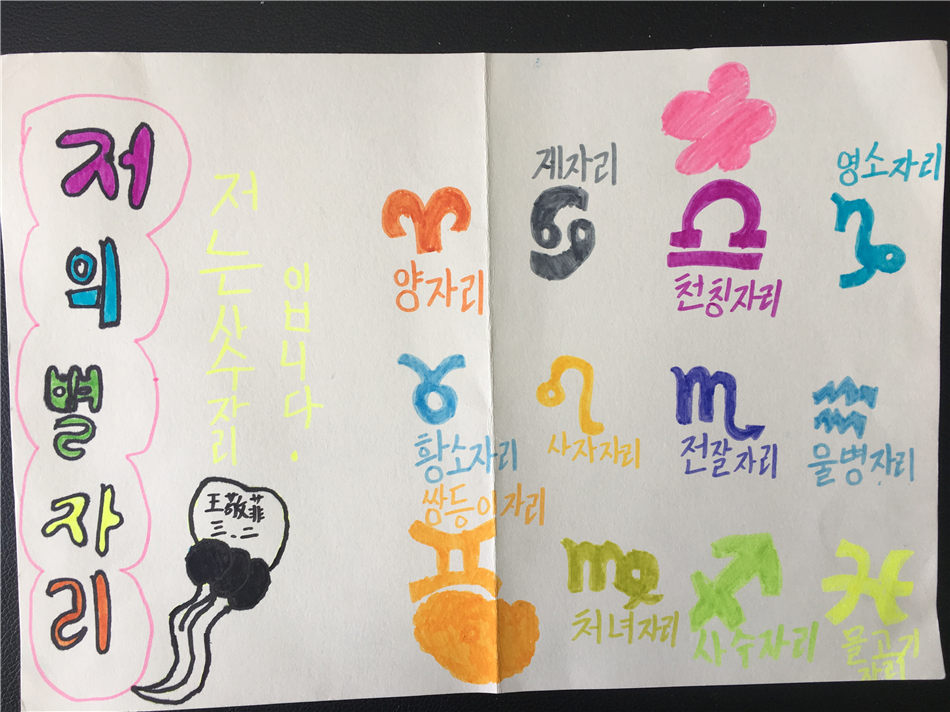 저의별자리
저는사수자리
이입니다.
王敬菲
三.二
양자리
황소자리
쌍등이자리
제자리
사자자리
처녀자리
천칭자리
전잘자리
사수자리
영소자리
물병자리
물고기
자리